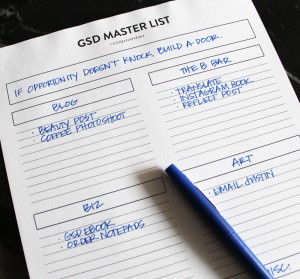 GSD MASTER LIST
IF OPPORTUNITY DOESN'T KNOCK, BUILD A DOOR.
BLOG
· BEAUTY POST
· COFFEE PHOTOSHOOT
THE B BAR
· TRANSLATE
· INSTAGRAM BOOK
· REFLECT POST
BIZ
· GSD EBOOK
· ORDER NOTEPADS
ART
· EMAIL JUSTIN
MISC.